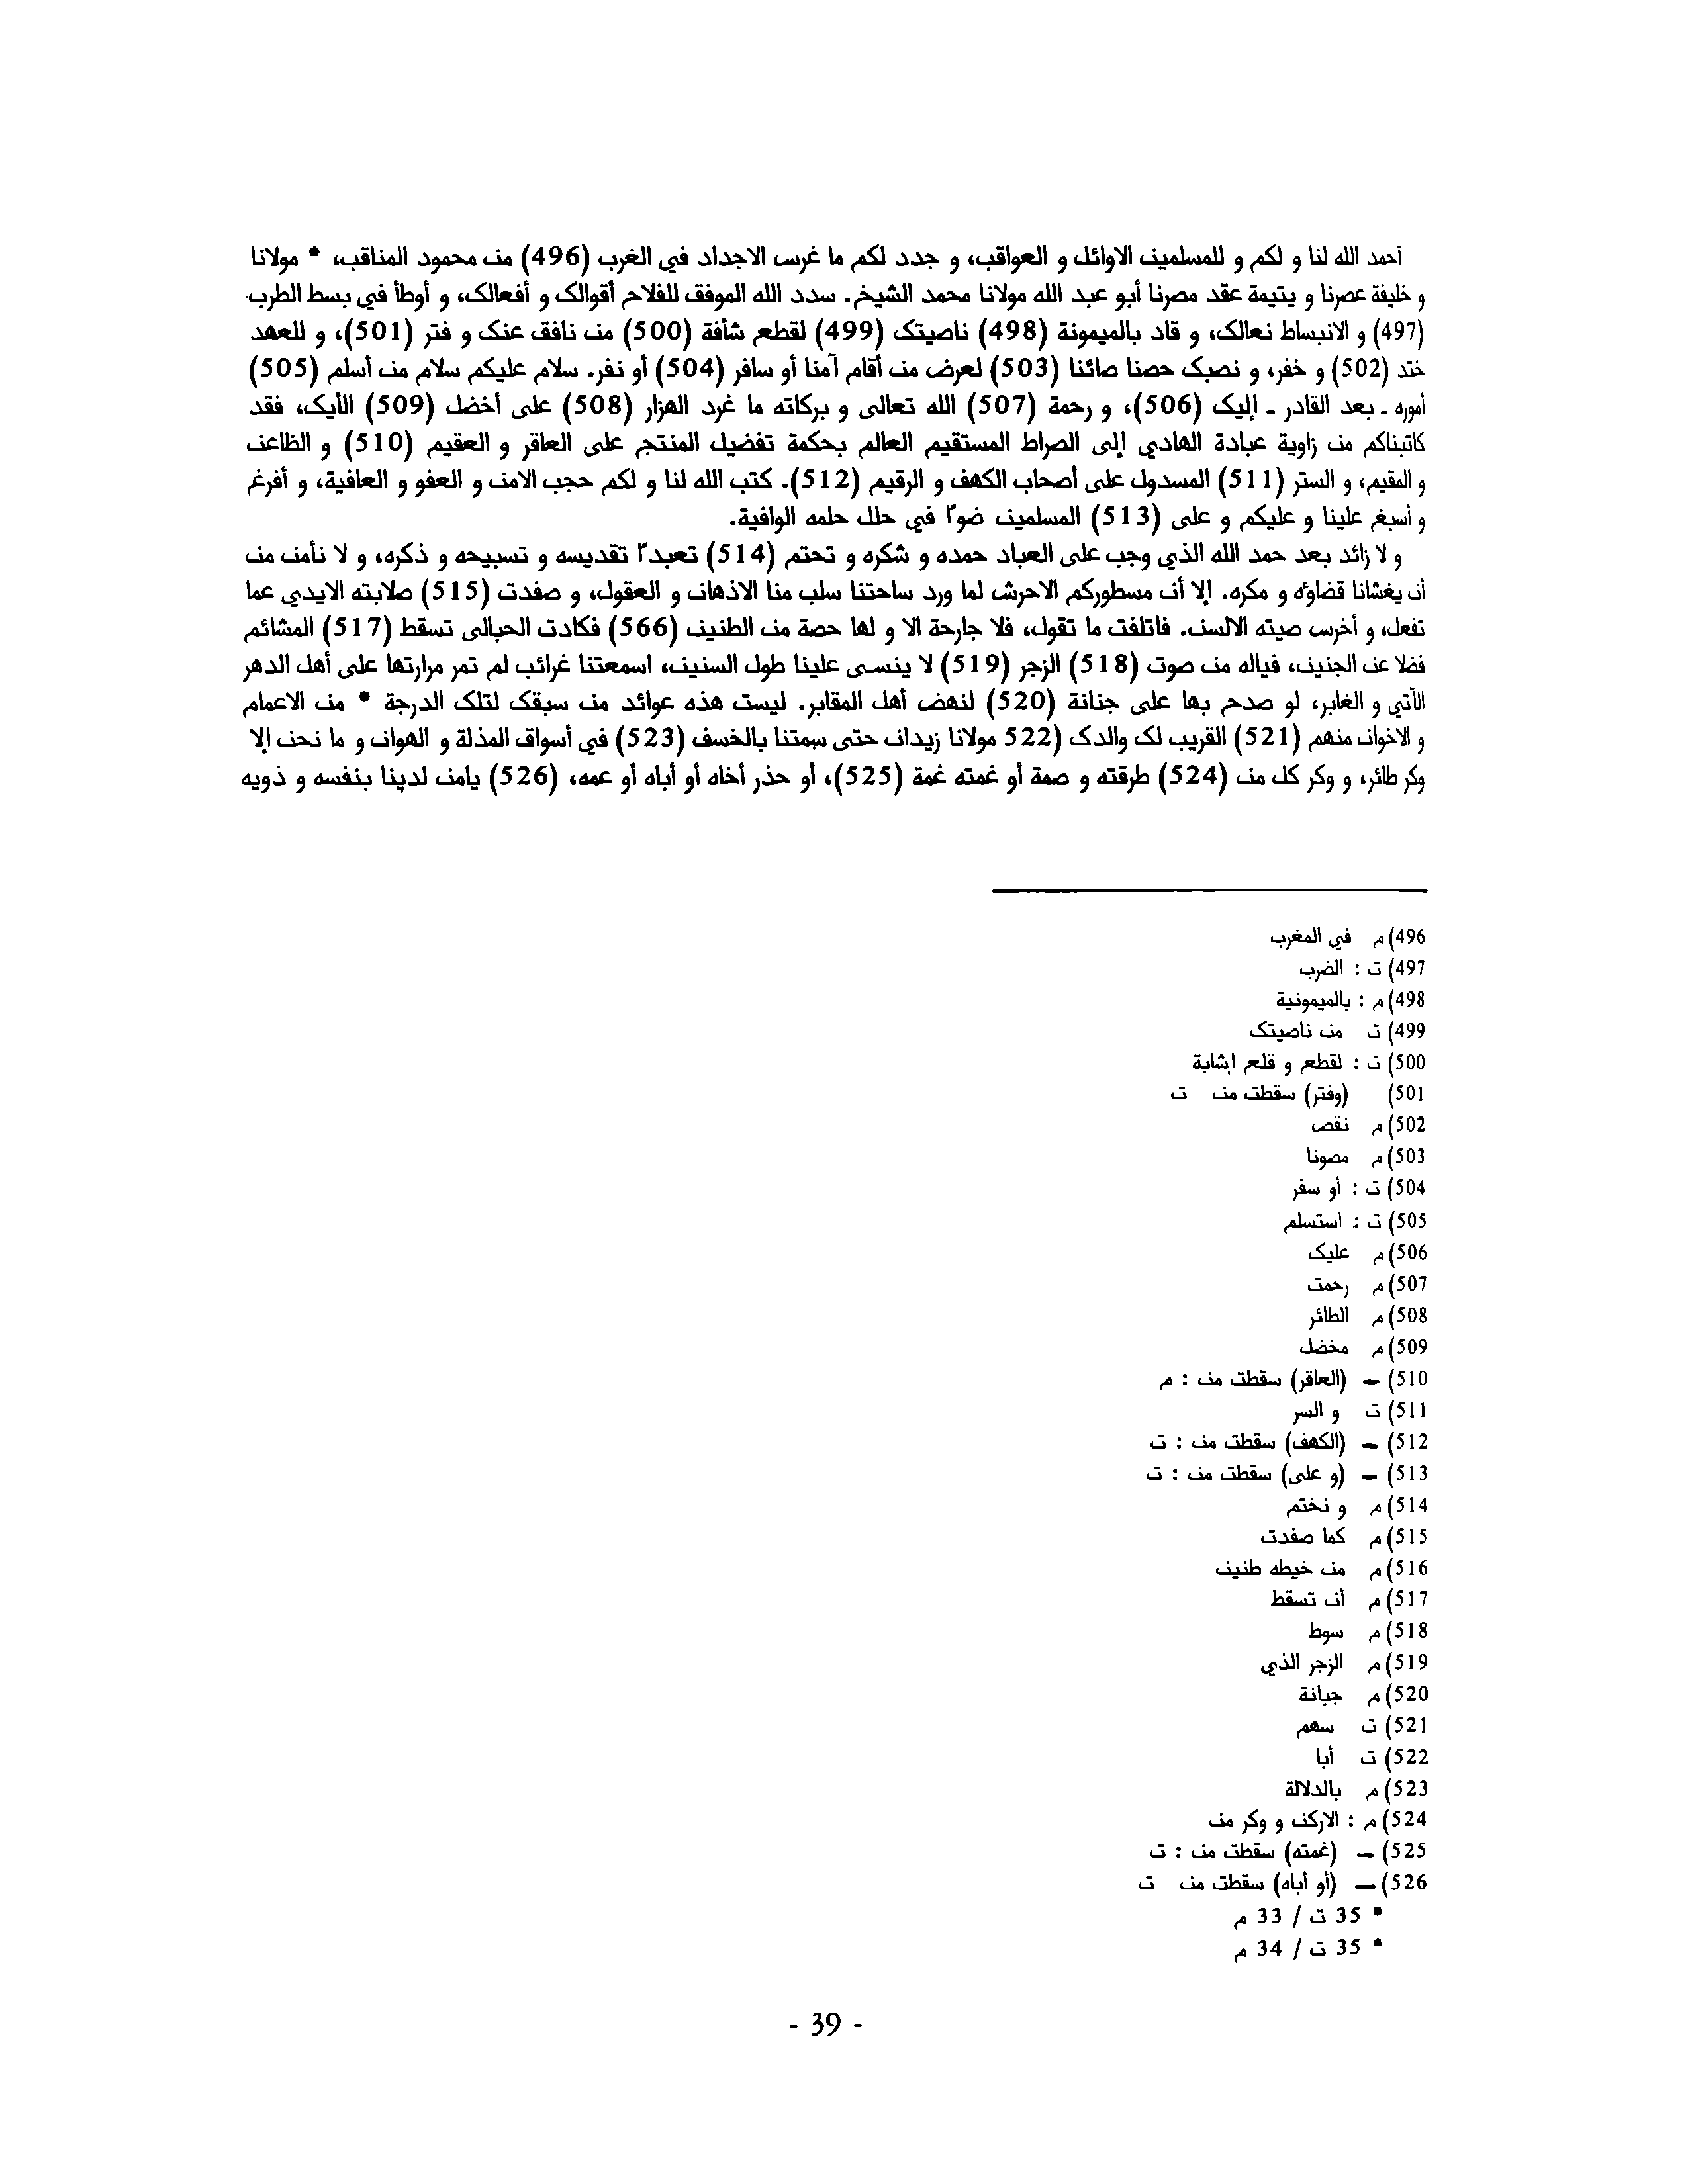 أحمد الله لنا و لكم و للمسلمين الاوائل و العواقب، و جدد لكم ما غرس الاجداد في الغرب (496) من محمود المناقب، * مولانا
و خليفة عصرنا و يتيمة عقد مصرنا أبو عبد الله مولانا محمد الشيخ. سدد الله الموفق للفلاح أقوالك و أفعالك، و أوطأ في بسط الطرب
(497) و الانبساط نعالك، و قاد بالميمونة (498) ناصيتك (499) لقطع شأفة (500) من نافق عنك و فتر (501)، و للعهد
ختد (502) و خفر، و نصبك حصنا صائنا (503) لعرض من أقام آمنا أو سافر (504) أو نفر. سلام عليكم سلام من أسلم (505)
أموره ـ بعد القادر ـ إليك (506)، و رحمة (507) الله تعالى و بركاته ما غرد الهزار (508) على أخضل (509) الأيك، فقد
كاتبناكم من زاوية عبادة الهادي إلى الصراط المستقيم العالم بحكمة تفضيل المنتج على العاقر و العقيم (510) و الظاعن
و المقيم، و الستر (511) المسدول على أصحاب الكهف و الرقيم (512). كتب الله لنا و لكم حجب الامن و العفو و العافية، و أفرغ
و أسبغ علينا و عليكم و على (513) المسلمين ضوءا في حلل حلمه الوافية.
و لا زائد بعد حمد الله الذي وجب على العباد حمده و شكره و تحتم (514) تعبدا تقديسه و تسبيحه و ذكره، و لا نأمن من
أن يغشانا قضاؤه و مكره. إلا أن مسطوركم الاحرش لما ورد ساحتنا سلب منا الاذهان و العقول، و صفدت (515) صلابته الايدي عما
تفعل، و أخرس صيته الالسن. فاتلفت ما تقول، فلا جارحة الا و لها حصة من الطنين (566) فكادت الحبالى تسقط (517) المشائم
فضلا عن الجنين، فياله من صوت (518) الزجر (519) لا ينسى علينا طول السنين، اسمعتنا غرائب لم تمر مرارتها على أهل الدهر
الآتي و الغابر، لو صدح بها على جنانة (520) لنهض أهل المقابر. ليست هذه عوائد من سبقك لتلك الدرجة * من الاعمام
و الاخوان منهم (521) القريب لك والدك (522 مولانا زيدان حتى سمتنا بالخسف (523) في أسواق المذلة و الهوان و ما نحن إلا
وكر طائر، و وكر كل من (524) طرقته و صمة أو غمته غمة (525)، أو حذر أخاه أو أباه أو عمه، (526) يامن لدينا بنفسه و ذويه
496) م في المغرب
497) ت : الضرب
498) م : بالميمونية
499) ت من ناصيتك
500) ت : لقطع و قلع إشابة
501) (وفتر) سقطت من ت
502) م نقص
503) م مصونا
504) ت : أو سفر
505) ت : استسلم
506) م عليك
507) م رحمت
508) م الطائر
509) م مخضل
510) – (العاقر) سقطت من : م
511) ت و السر
512) – (الكهف) سقطت من : ت
513) – (و على) سقطت من : ت
514) م و نختم
515) م كما صفدت
516) م من خيطه طنين
517) م أن تسقط
518) م سوط
519) م الزجر الذي
520) م جبانة
521) ت سهم
522) ت أبا
523) م بالدلالة
524) م : الاركن و وكر من
525) – (غمته) سقطت من : ت
526) – (أو أباه) سقطت من ت
* 35 ت / 33 م
* 35 ت / 34 م
- 39 -